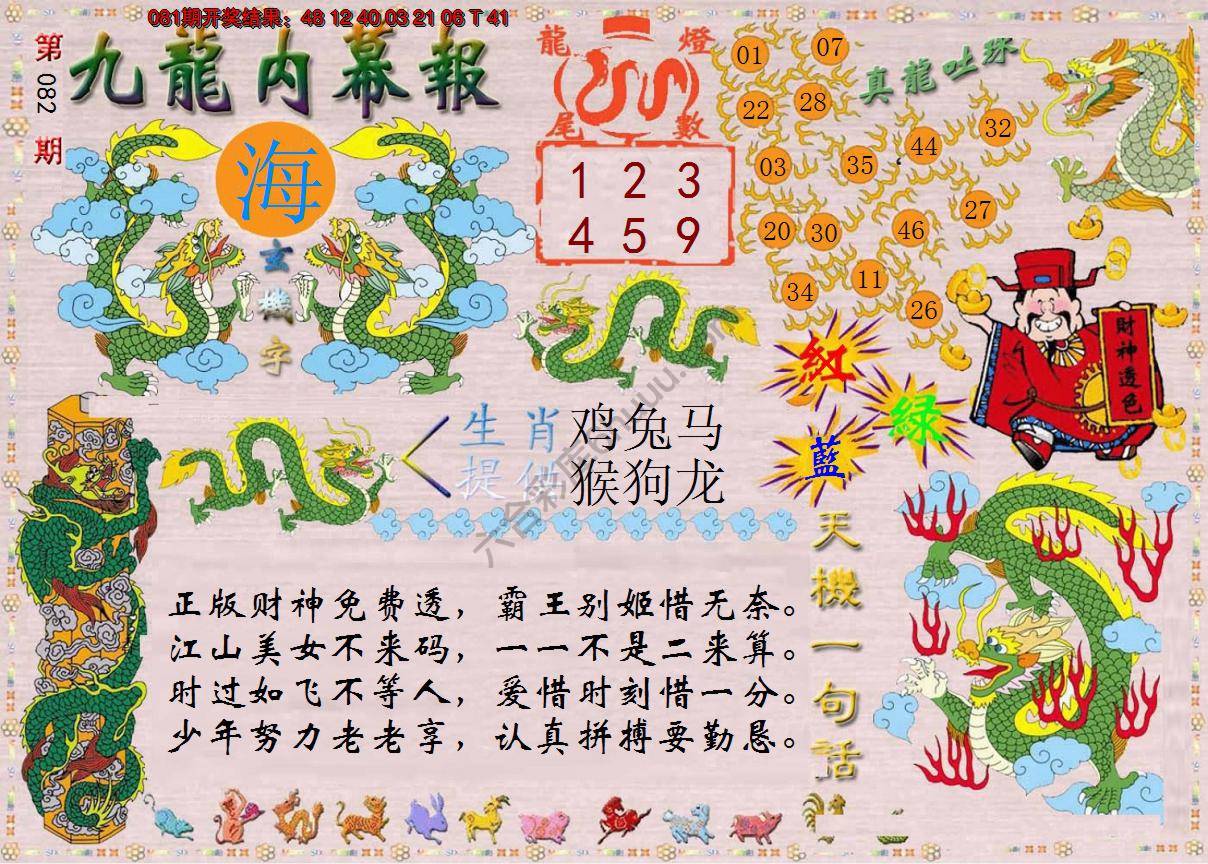 081期开奖结果：48 12 40 03 21 06 T 41
第082期
九龍内幕報
海
玄機字
龍燈
尾數
1 2 3
4 5 9
真龍吐珠
01
07
22
28
03
35
44
32
20
30
46
27
34
11
26
財神透色
紅
綠
藍
生肖
提供
鸡兔马
猴狗龙
正版财神免费透，霸王别姬惜无奈。
江山美女不来码，一一不是二来算。
时过如飞不等人，爱惜时刻惜一分。
少年努力老老享，认真拼搏要勤恳。
天機一句話